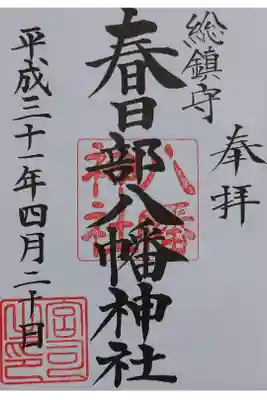 奉拝
総鎮守
春日部八幡神社
八幡
神社
平成三十一年四月二十日
宮司之印